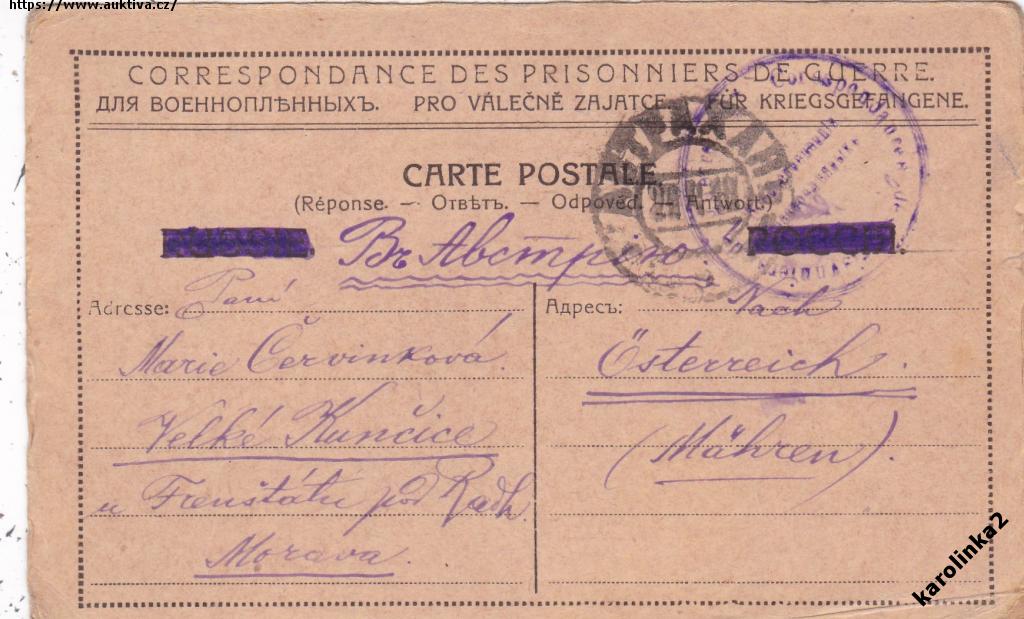 https://www.auktiva.cz/
CORRESPONDANCE DES PRISONNIERS DE GUERRE.
ДЛЯ ВОЕННОПЛѢННЫХЪ. PRO VÁLEČNĚ ZAJATCE. FÜR KRIEGSGEFANGENE.
CARTE POSTALE
(Réponse. — Отвѣтъ. — Odpověd. — Antwort.)
Въ Австрію.
Adresse: Paní
Marie Červinková
Velké Kunčice
u Frenštátu pod Radh.
Morava.
Адресъ: Nach
Österreich.
(Mähren).
АСТРАХАНЬ
Correspondance de
karolinka2